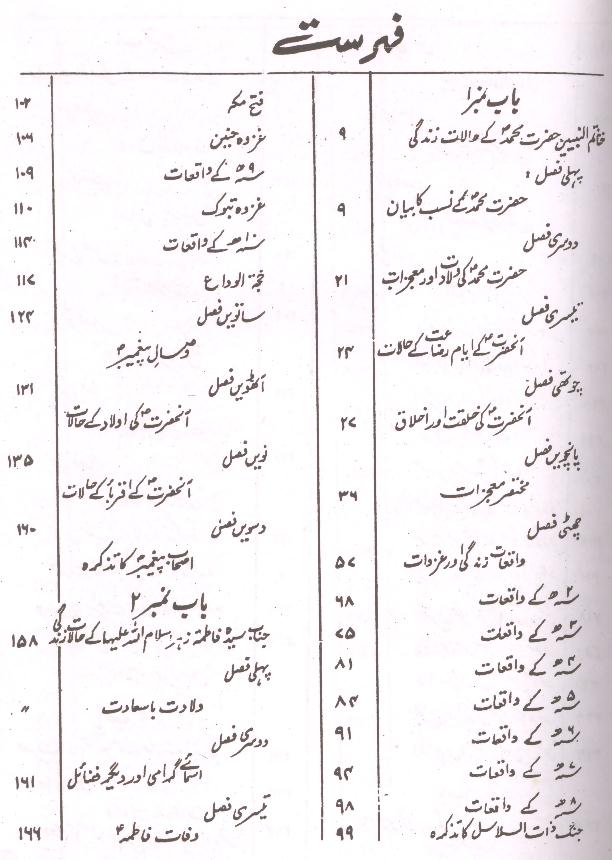 فہرست
باب نمبر ۱
خاتم النبیین حضرت محمدؐ کے حالات زندگی ۹
پہلی فصل :
حضرت محمدؐ کے نسب کا بیان ۹
دوسری فصل
حضرت محمدؐ کی ولادت اور معجزات ۲۱
تیسری فصل
آنحضرتؐ کے ایام رضاعت کے حالات ۲۴
چوتھی فصل
آنحضرتؐ کی خلقت اور اخلاق ۲۷
پانچویں فصل
مختصر معجزات ۳۶
چھٹی فصل
واقعات زندگی اور غزوات ۵۷
۲ھ کے واقعات ۶۸
۳ھ کے واقعات ۷۵
۴ھ کے واقعات ۸۱
۵ھ کے واقعات ۸۴
۶ھ کے واقعات ۹۱
۷ھ کے واقعات ۹۴
۸ھ کے واقعات ۹۸
جنگ ذات السلاسل کا تذکرہ ۹۹
فتح مکہ ۱۰۲
غزوہ حنین ۱۰۶
۹ھ کے واقعات ۱۰۹
غزوہ تبوک ۱۱۰
۱۰ھ کے واقعات ۱۱۴
حجۃ الوداع ۱۱۷
ساتویں فصل ۱۲۴
وصال پیغمبرؐ
آٹھویں فصل ۱۳۱
آنحضرتؐ کی اولاد کے حالات
نویں فصل ۱۳۵
آنحضرتؐ کے اقرباء کے حالات
دسویں فصل ۱۴۰
اصحاب پیغمبرؐ کا تذکرہ
باب نمبر ۲
جناب سیدہ فاطمہ زہرا سلام اللہ علیہا کے حالات زندگی ۱۵۸
پہلی فصل
ولادت باسعادت ״
دوسری فصل
اسمائے گرامی اور دیگر فضائل ۱۶۱
تیسری فصل
وفات فاطمہؑ ۱۶۶